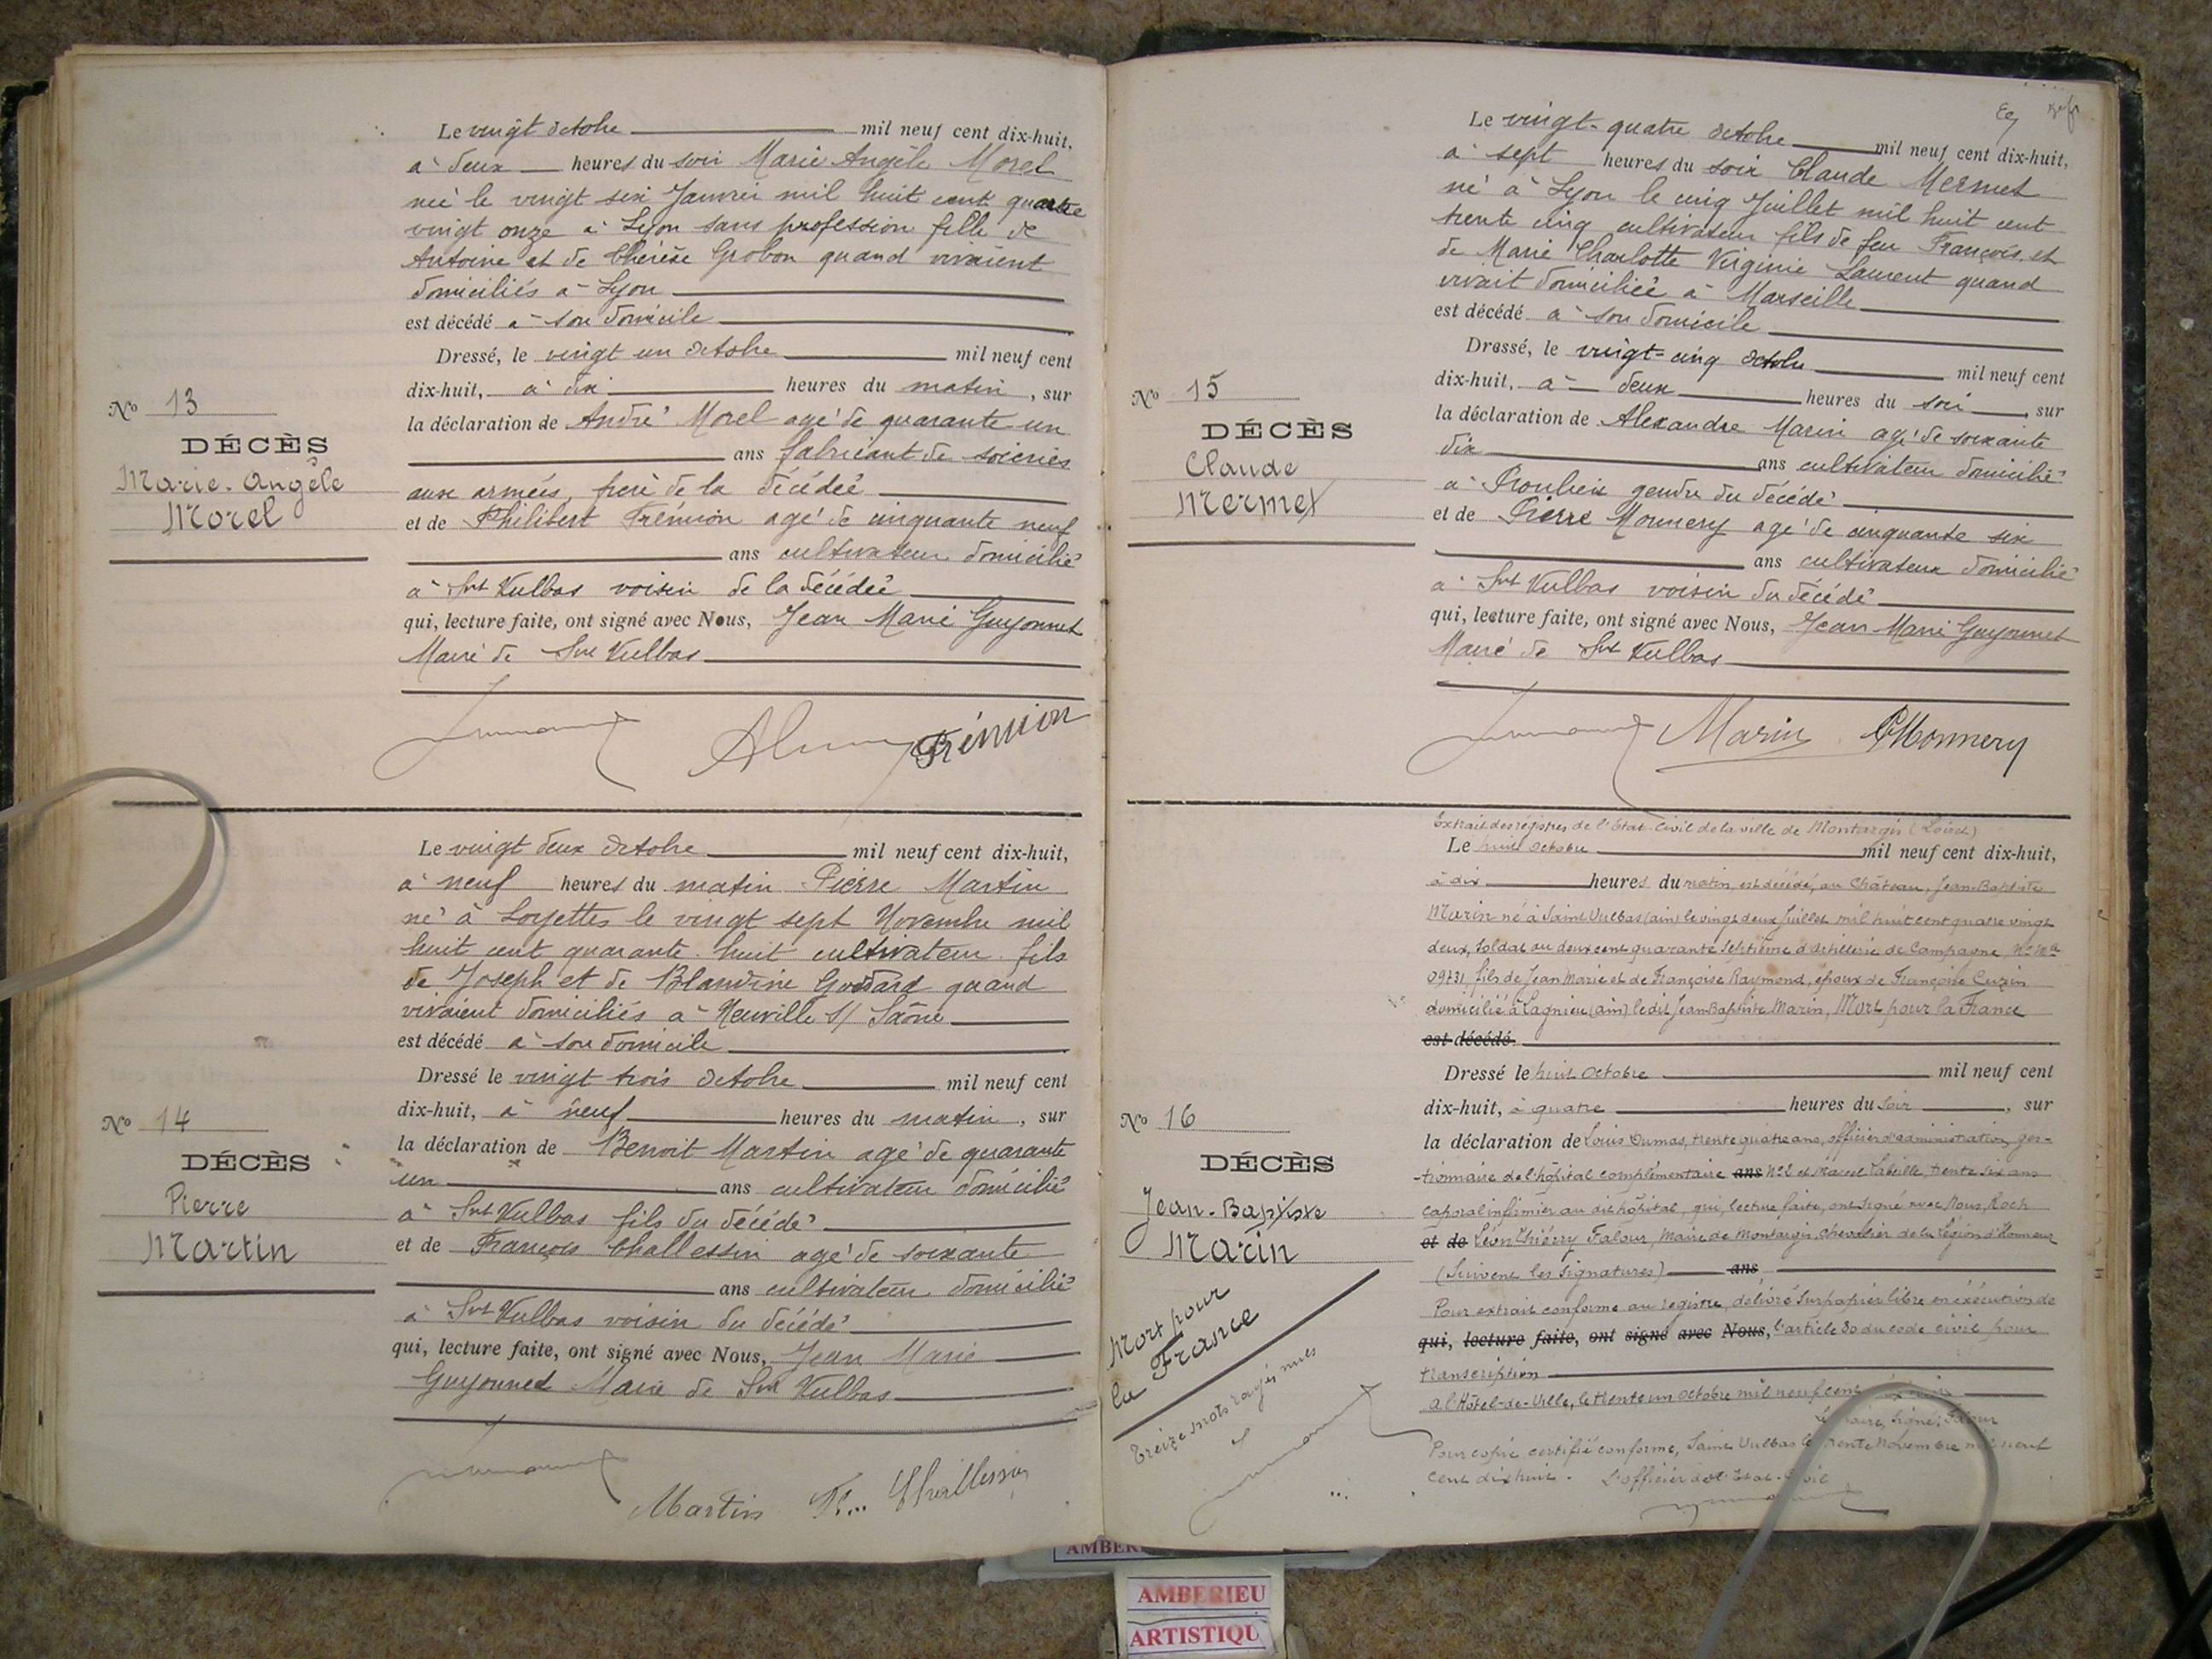 Le vingt octobre mil neuf cent dix-huit,
à deux heures du soir Marie Angèle Morel
née le vingt six Janvier mil huit cent quatre
vingt onze à Lyon sans profession fille de
Antoine et de Thérèse Grobon quand vivaient
domiciliés à Lyon
est décédé à son domicile
Dressé, le vingt un octobre mil neuf cent
dix-huit, à dix heures du matin, sur
la déclaration de André Morel agé de quarante un
ans fabricant de soieries
aux armées, frère de la décédée
et de Philibert Frémion agé de cinquante neuf
ans cultivateur domicilié
à Snt Vulbas voisin de la décédée
qui, lecture faite, ont signé avec Nous, Jean Marie Guyonnet
Maire de Snt Vulbas
No 13
DÉCÈS
Marie-Angèle
Morel
Frémion
Le vingt deux octobre mil neuf cent dix-huit,
à neuf heures du matin Pierre Martin
né à Loyettes le vingt sept Novembre mil
huit cent quarante huit cultivateur fils
de Joseph et de Blandine Goddard quand
vivaient domiciliés à Neuville s/ Saône
est décédé à son domicile
Dressé le vingt trois octobre mil neuf cent
dix-huit, à neuf heures du matin, sur
la déclaration de Benoit Martin agé de quarante
un ans cultivateur domicilié
à Snt Vulbas fils du décédé
et de François Challessin agé de soixante
ans cultivateur domicilié
à Snt Vulbas voisin du décédé
qui, lecture faite, ont signé avec Nous, Jean Marie
Guyonnet Maire de Snt Vulbas
No 14
DÉCÈS
Pierre
Martin
Martin
Le vingt-quatre octobre mil neuf cent dix-huit,
à sept heures du soir Claude Mermet
né à Lyon le cinq Juillet mil huit cent
trente cinq cultivateur fils de feu François et
de Marie Charlotte Virginie Laurent quand
vivait domiciliée à Marseille
est décédé à son domicile
Dressé, le vingt-cinq octobre mil neuf cent
dix-huit, à deux heures du soir, sur
la déclaration de Alexandre Marin agé de soixante
dix ans cultivateur domicilié
à gendre du décédé
et de Pierre Monnery agé de cinquante six
ans cultivateur domicilié
à Snt Vulbas voisin du décédé
qui, lecture faite, ont signé avec Nous, Jean Marie Guyonnet
Maire de Snt Vulbas
No 15
DÉCÈS
Claude
Mermet
Marin PMonnery
Extrait des registres de l'État-Civil de la ville de Montargis (Loiret)
Le huit octobre mil neuf cent dix-huit,
à dix heures du matin, est décédé, au Château, Jean-Baptiste
Marin né à Saint Vulbas (ain) le vingt deux Juillet mil huit cent quatre vingt
deux, soldat au deux cent quarante septième d'artillerie de Campagne, No Mle
09731, fils de Jean Marie et de Françoise Raymond, époux de Françoise Cuzin
domicilié à Lagnieu (ain) ledit Jean Baptiste Marin, Mort pour la France
est décédé
Dressé le huit octobre mil neuf cent
dix-huit, à quatre heures du soir, sur
la déclaration de Louis Dumas, trente quatre ans, officier d'administration, ges-
-tionnaire de l'hôpital complémentaire ans No2 et Marcel Labeille, trente six ans
caporal infirmier au dit hôpital, qui, lecture faite, ont signé avec Nous, Roch
et de Léon Thiérry Falour, Maire de Montargis, chevalier de la Légion d'Honneur
(Suivent les signatures) ans
Pour extrait conforme au registre, délivré sur papier libre en exécution de
qui, lecture faite, ont signé avec Nous, l'article 80 du code civil pour
transcription
A l'Hôtel-de-Ville, le trente un octobre mil neuf cent dix huit
Le Maire, signé: Falour
Pour copie certifiée conforme, Saint Vulbas le trente Novembre mil neuf
cent dix huit. L'officier de l'Etat-Civil
No 16
DÉCÈS
Jean-Baptiste
Marin
Mort pour
la France
Treize mots rayés nuls
AMBERIEU
ARTISTIQU